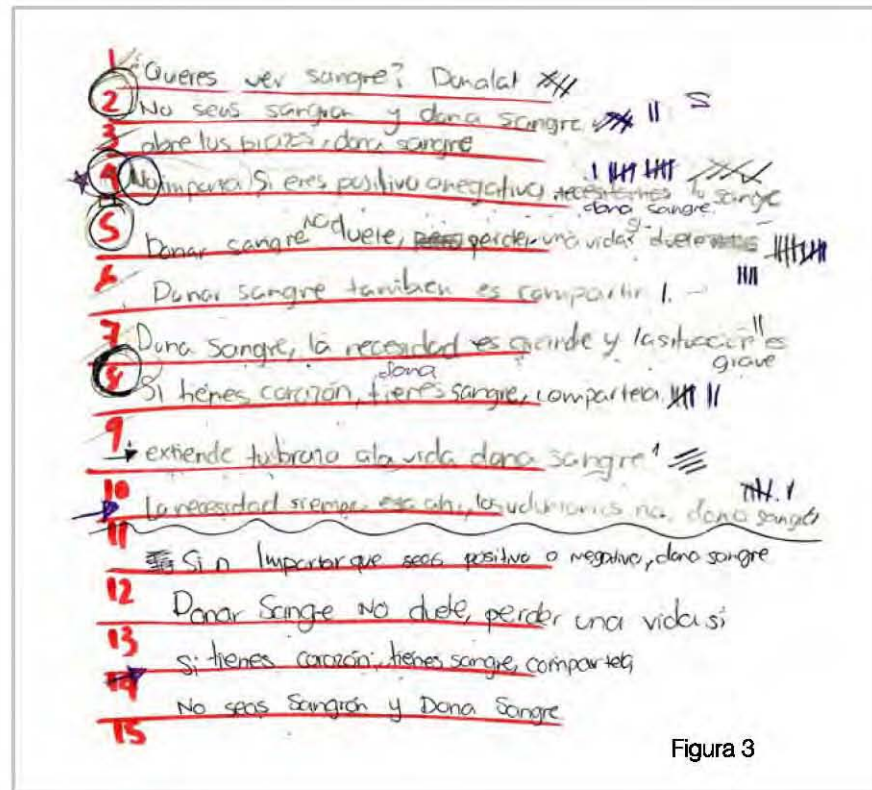 1 ¿Queres ver sangre? Donala!
2 No seas sangron y dona sangre
3 abre tus brazos, dona sangre
4 No importa si eres positivo o negativo, necesitamos tu sangre
dona sangre
5 Donar sangre no duele, perder una vida si duele
6 Donar sangre tambien es compartir
7 Dona sangre, la necesidad es grande y la situación es
grave
dona
8 Si tienes corazón, tienes sangre, compartela
9 extiende tu brazo a la vida dona sangre
10 La necesidad siempre esta ahi, los voluntarios no, dona sangre
11 Si n Importar que seas positivo o negativo, dona sangre
12 Donar Sangre No duele, perder una vida si
13 Si tienes corazón, tienes sangre, compartela
14 No seas Sangrón y Dona Sangre
15
Figura 3